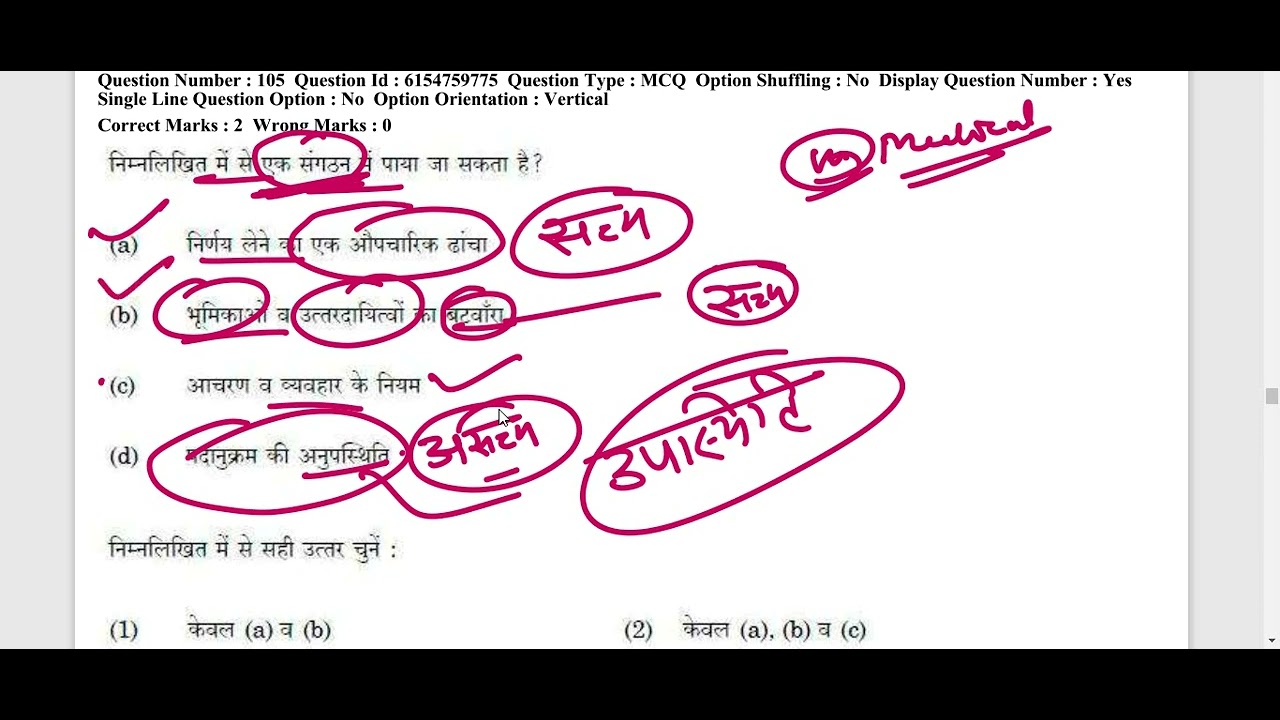 Question Number : 105 Question Id : 6154759775 Question Type : MCQ Option Shuffling : No Display Question Number : Yes
Single Line Question Option : No Option Orientation : Vertical
Correct Marks : 2 Wrong Marks : 0
निम्नलिखित में से एक संगठन में पाया जा सकता है?
(a) निर्णय लेने का एक औपचारिक ढांचा सत्य
(b) भूमिकाओं व उत्तरदायित्वों का बटवाँरा सत्य
(c) आचरण व व्यवहार के नियम
(d) पदानुक्रम की अनुपस्थिति असत्य
निम्नलिखित में से सही उत्तर चुनें :
(1) केवल (a) व (b) (2) केवल (a), (b) व (c)